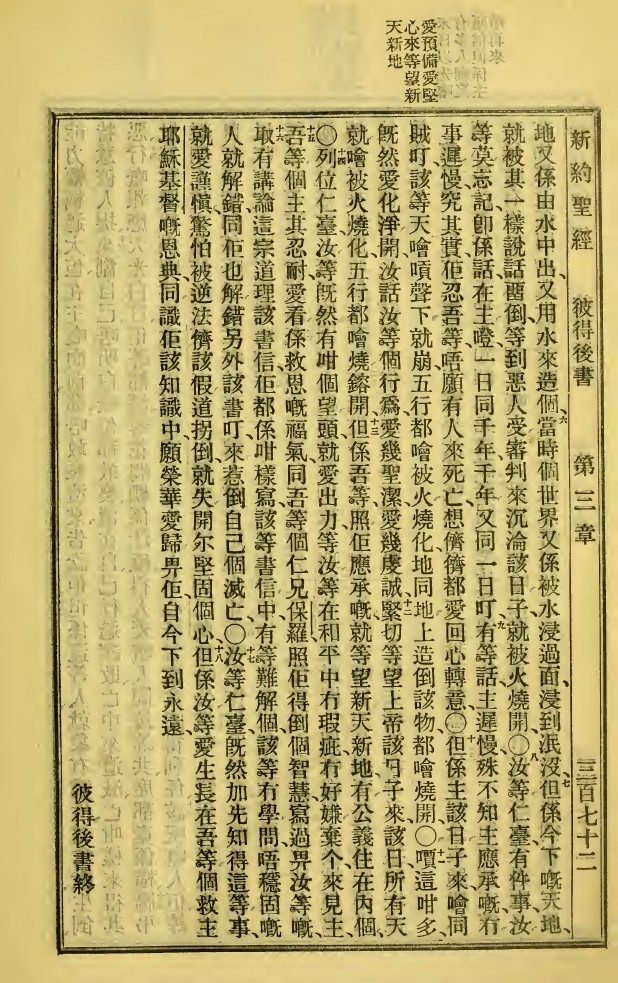 愛預備愛堅
心來等望新
天新地
新約聖經 彼得後書 第三章 三百七十二
地又係由水中出、又用水來造個、六當時個世界又係被水浸過面、浸到泯沒、七但係今下嘅天地、
就被其一樣說話囥倒等到惡人受審判來沉淪該日子就被火燒開〇八汝等仁臺有件事汝
等莫忘記卽係話在主噔一日同千年千年又同一日叮、九有等話主遲慢殊不知主應承嘅冇
事遲慢究其實佢忍吾等唔願有人來死亡、想儕儕都愛回心轉意〇十但係主該日子來噲同
賊叮該等天噲嗊聲下就崩五行都噲被火燒化地同地上造倒該物都噲燒開〇十一嘪這咁多、
旣然愛化淨開汝話汝等個行爲愛幾聖潔愛幾虔誠、十二緊切等望上帝該日子來該日所有天
就噲被火燒化五行都噲燒鎔開、十三但係吾等照佢應承嘅就等望新天新地有公義住在內個、
〇十四列位仁臺汝等旣然有咁個望頭就愛出力等汝等在和平中冇瑕疵冇好嫌棄个來見主、
十五吾等個主其忍耐愛看係救恩嘅福氣同吾等個仁兄保羅照佢得倒個智慧寫過畀汝等嘅、
十六取有講論這宗道理該書信佢都係咁樣寫該等書信中有等難解個該等冇學問唔穩固嘅
人就解錯同佢也解錯另外該書叮來惹倒自己個滅亡〇十七汝等仁臺旣然加先知得這等事
就愛謹愼驚怕被逆法儕該假道拐倒就失開尔堅固個心、十八但係汝等愛生長在吾等個救主
耶穌基督嘅恩典同識佢該知識中願榮華愛歸畀佢自今下到永遠、
彼得後書終